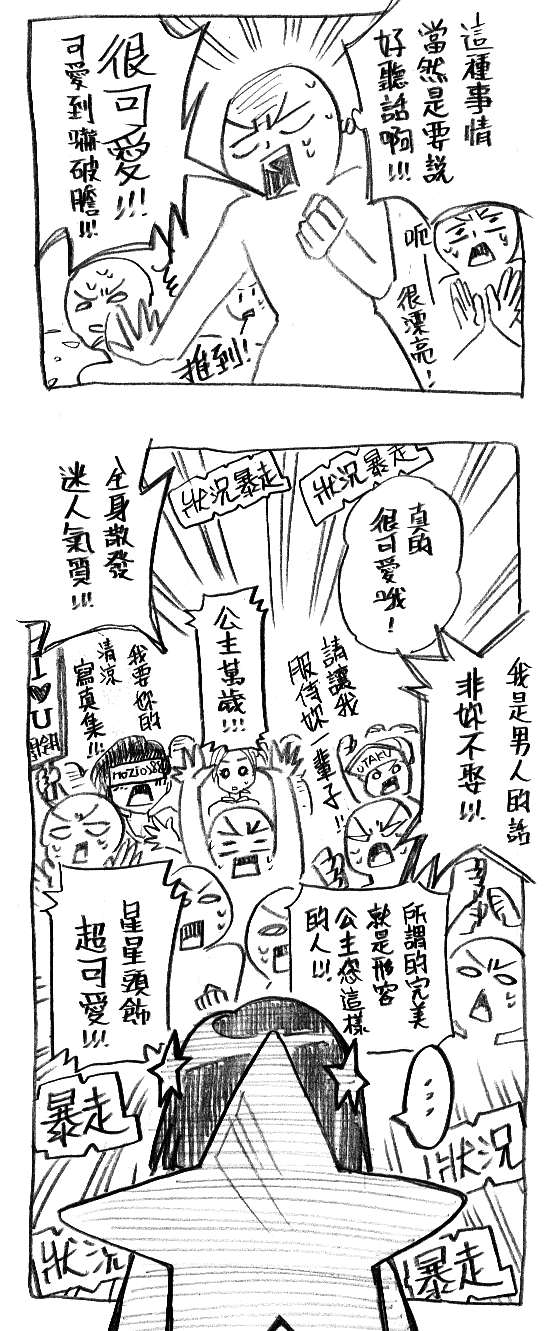 這種事情
當然是要說
好聽話啊!!!
很可愛!!!
可愛到嚇破膽!!!
呃——
很漂亮!
推到!
狀況暴走
狀況暴走
真的
很可愛哦!
全身散發
迷人氣質!!!
公主萬歲!!!
我是男人的話
非妳不娶!!!
請讓我
服侍妳一輩子!!
我要妳的
清涼
寫真集!!!
I♥U
UTAKU
所謂的完美
就是形容
公主您這樣
的人!!!
星星頭飾
超可愛!!!
...
暴走
狀況
狀況
暴走